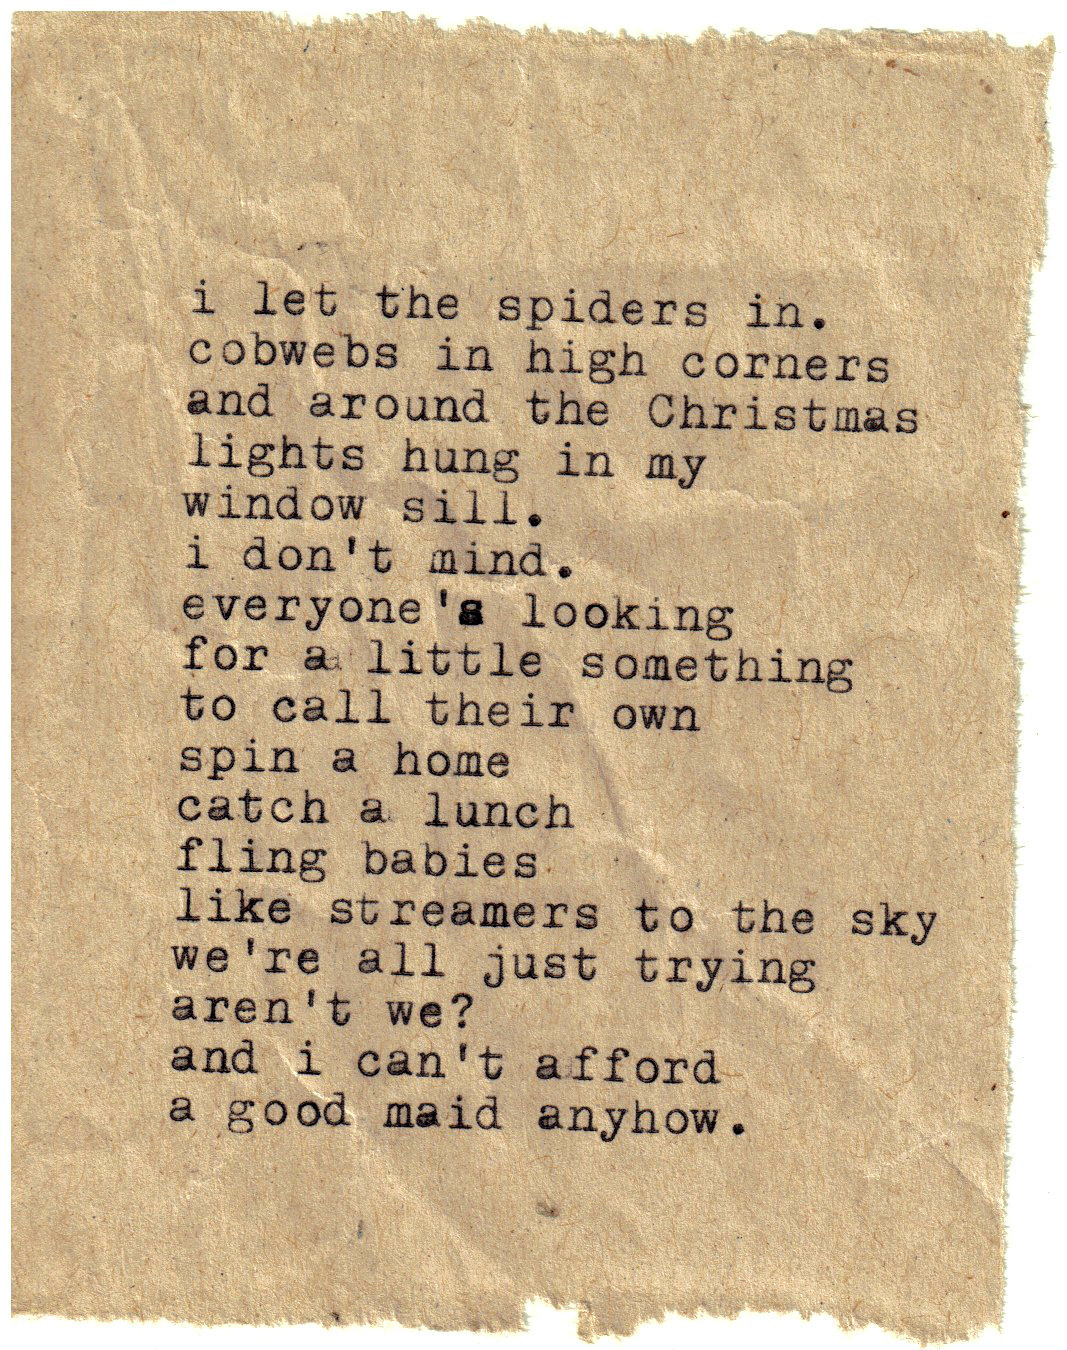 i let the spiders in.
cobwebs in high corners
and around the Christmas
lights hung in my
window sill.
i don't mind.
everyone's looking
for a little something
to call their own
spin a home
catch a lunch
fling babies
like streamers to the sky
we're all just trying
aren't we?
and i can't afford
a good maid anyhow.